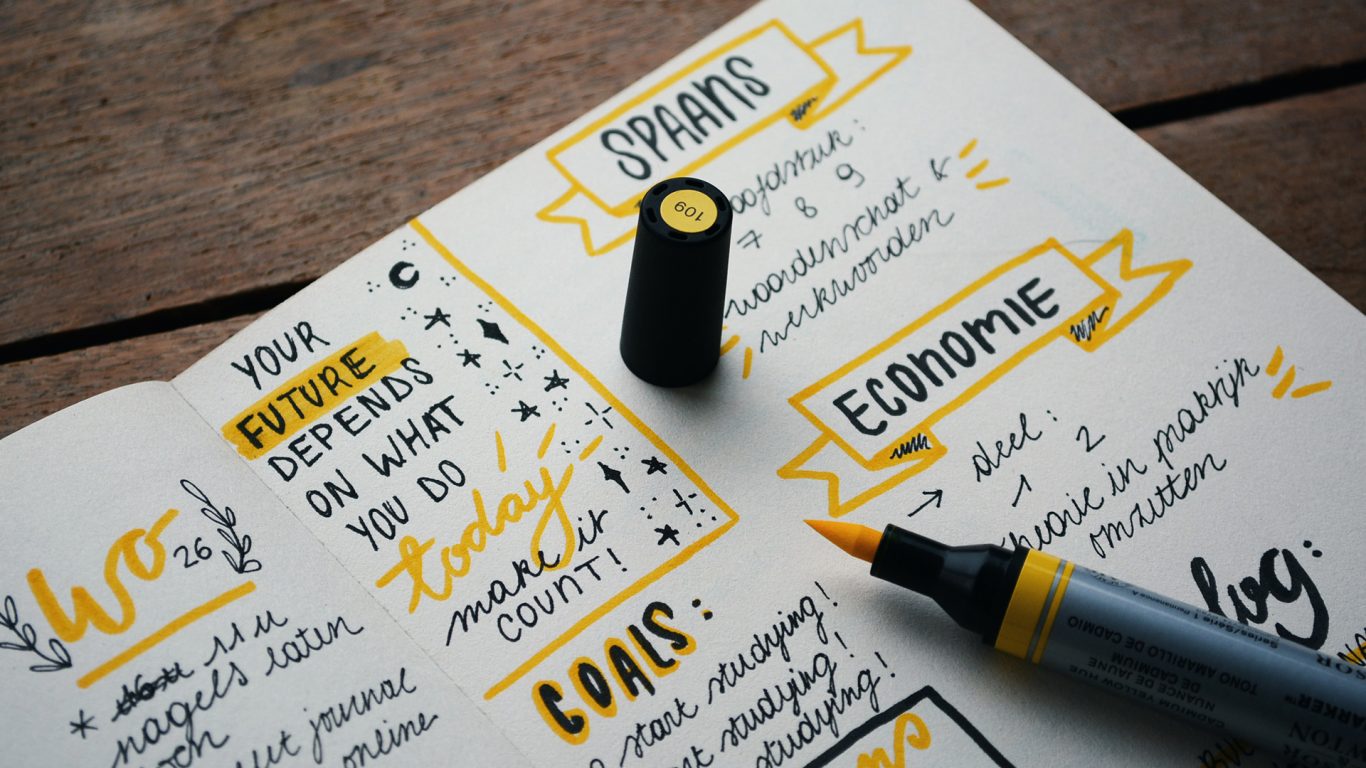 wo
26
11 u
nagels laten
journal
online
YOUR
FUTURE
DEPENDS
ON WHAT
YOU DO
today
make it
COUNT!
GOALS:
start studying!
studying!
studying!
SPAANS
7 8 9
woordenschat &
werkwoorden
ECONOMIE
→ deel:
1 2
theorie in praktijk
omzetten
109
Series/Série 1 Permanence A
CADMIUM YELLOW HUE
NUANCE DE JAUNE
DE CADMIUM
TONO AMARILLO DE CADMIO